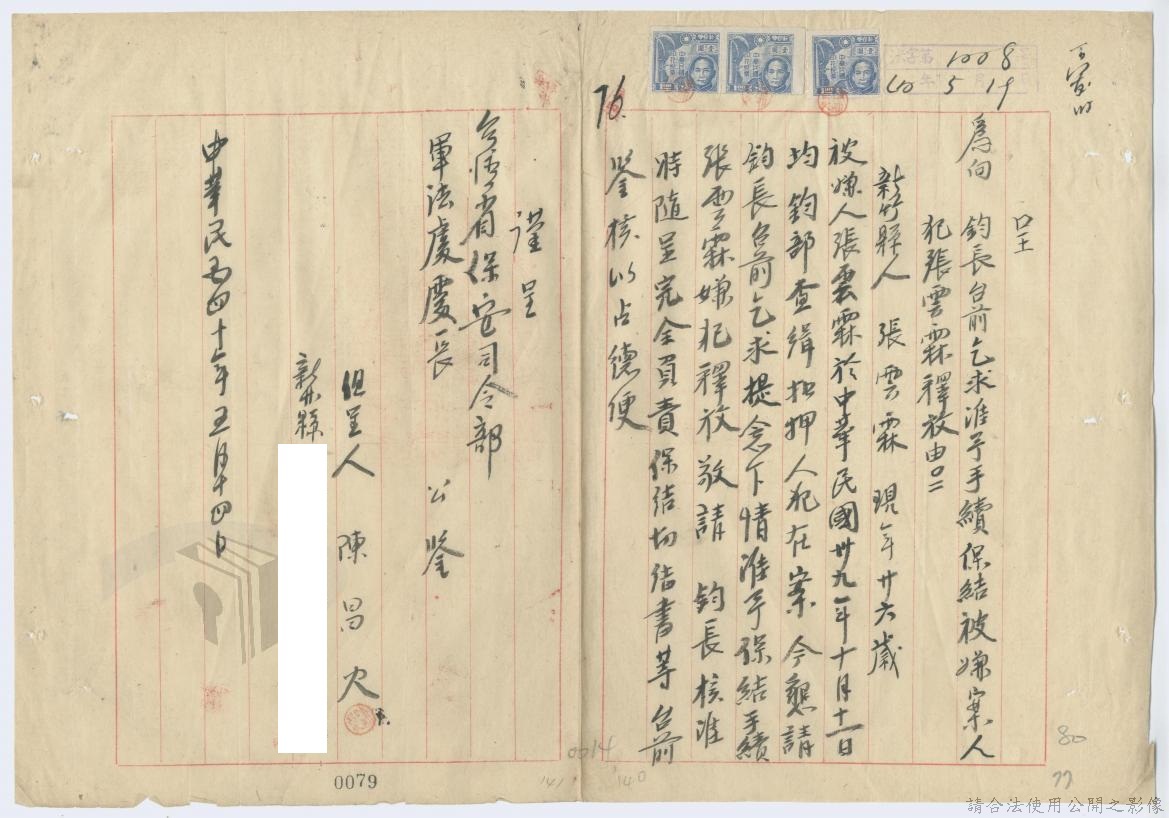 第 1008 號
40 年 5 月 19
呈
為向 鈞長台前乞求准予手續保結被嫌案人
犯張雲霖釋放由
新竹縣人 張雲霖 現年廿六歲
被嫌人張雲霖於中華民國卅九年十月十一日
均鈞部查緝扣押人犯在案今懇請
鈞長台前乞求提念下情准予保結手續
張雲霖嫌犯釋放敬請 鈞長核准
時隨呈完全負責保結切結書等台前
鑒核以占德便
76.
謹呈
台湾省保安司令部
軍法處處長 公鑒
但呈人 陳昌
新竹縣
中華民國四十年五月十四日
0079
0014
141
140
80
77
請合法使用公開之影像